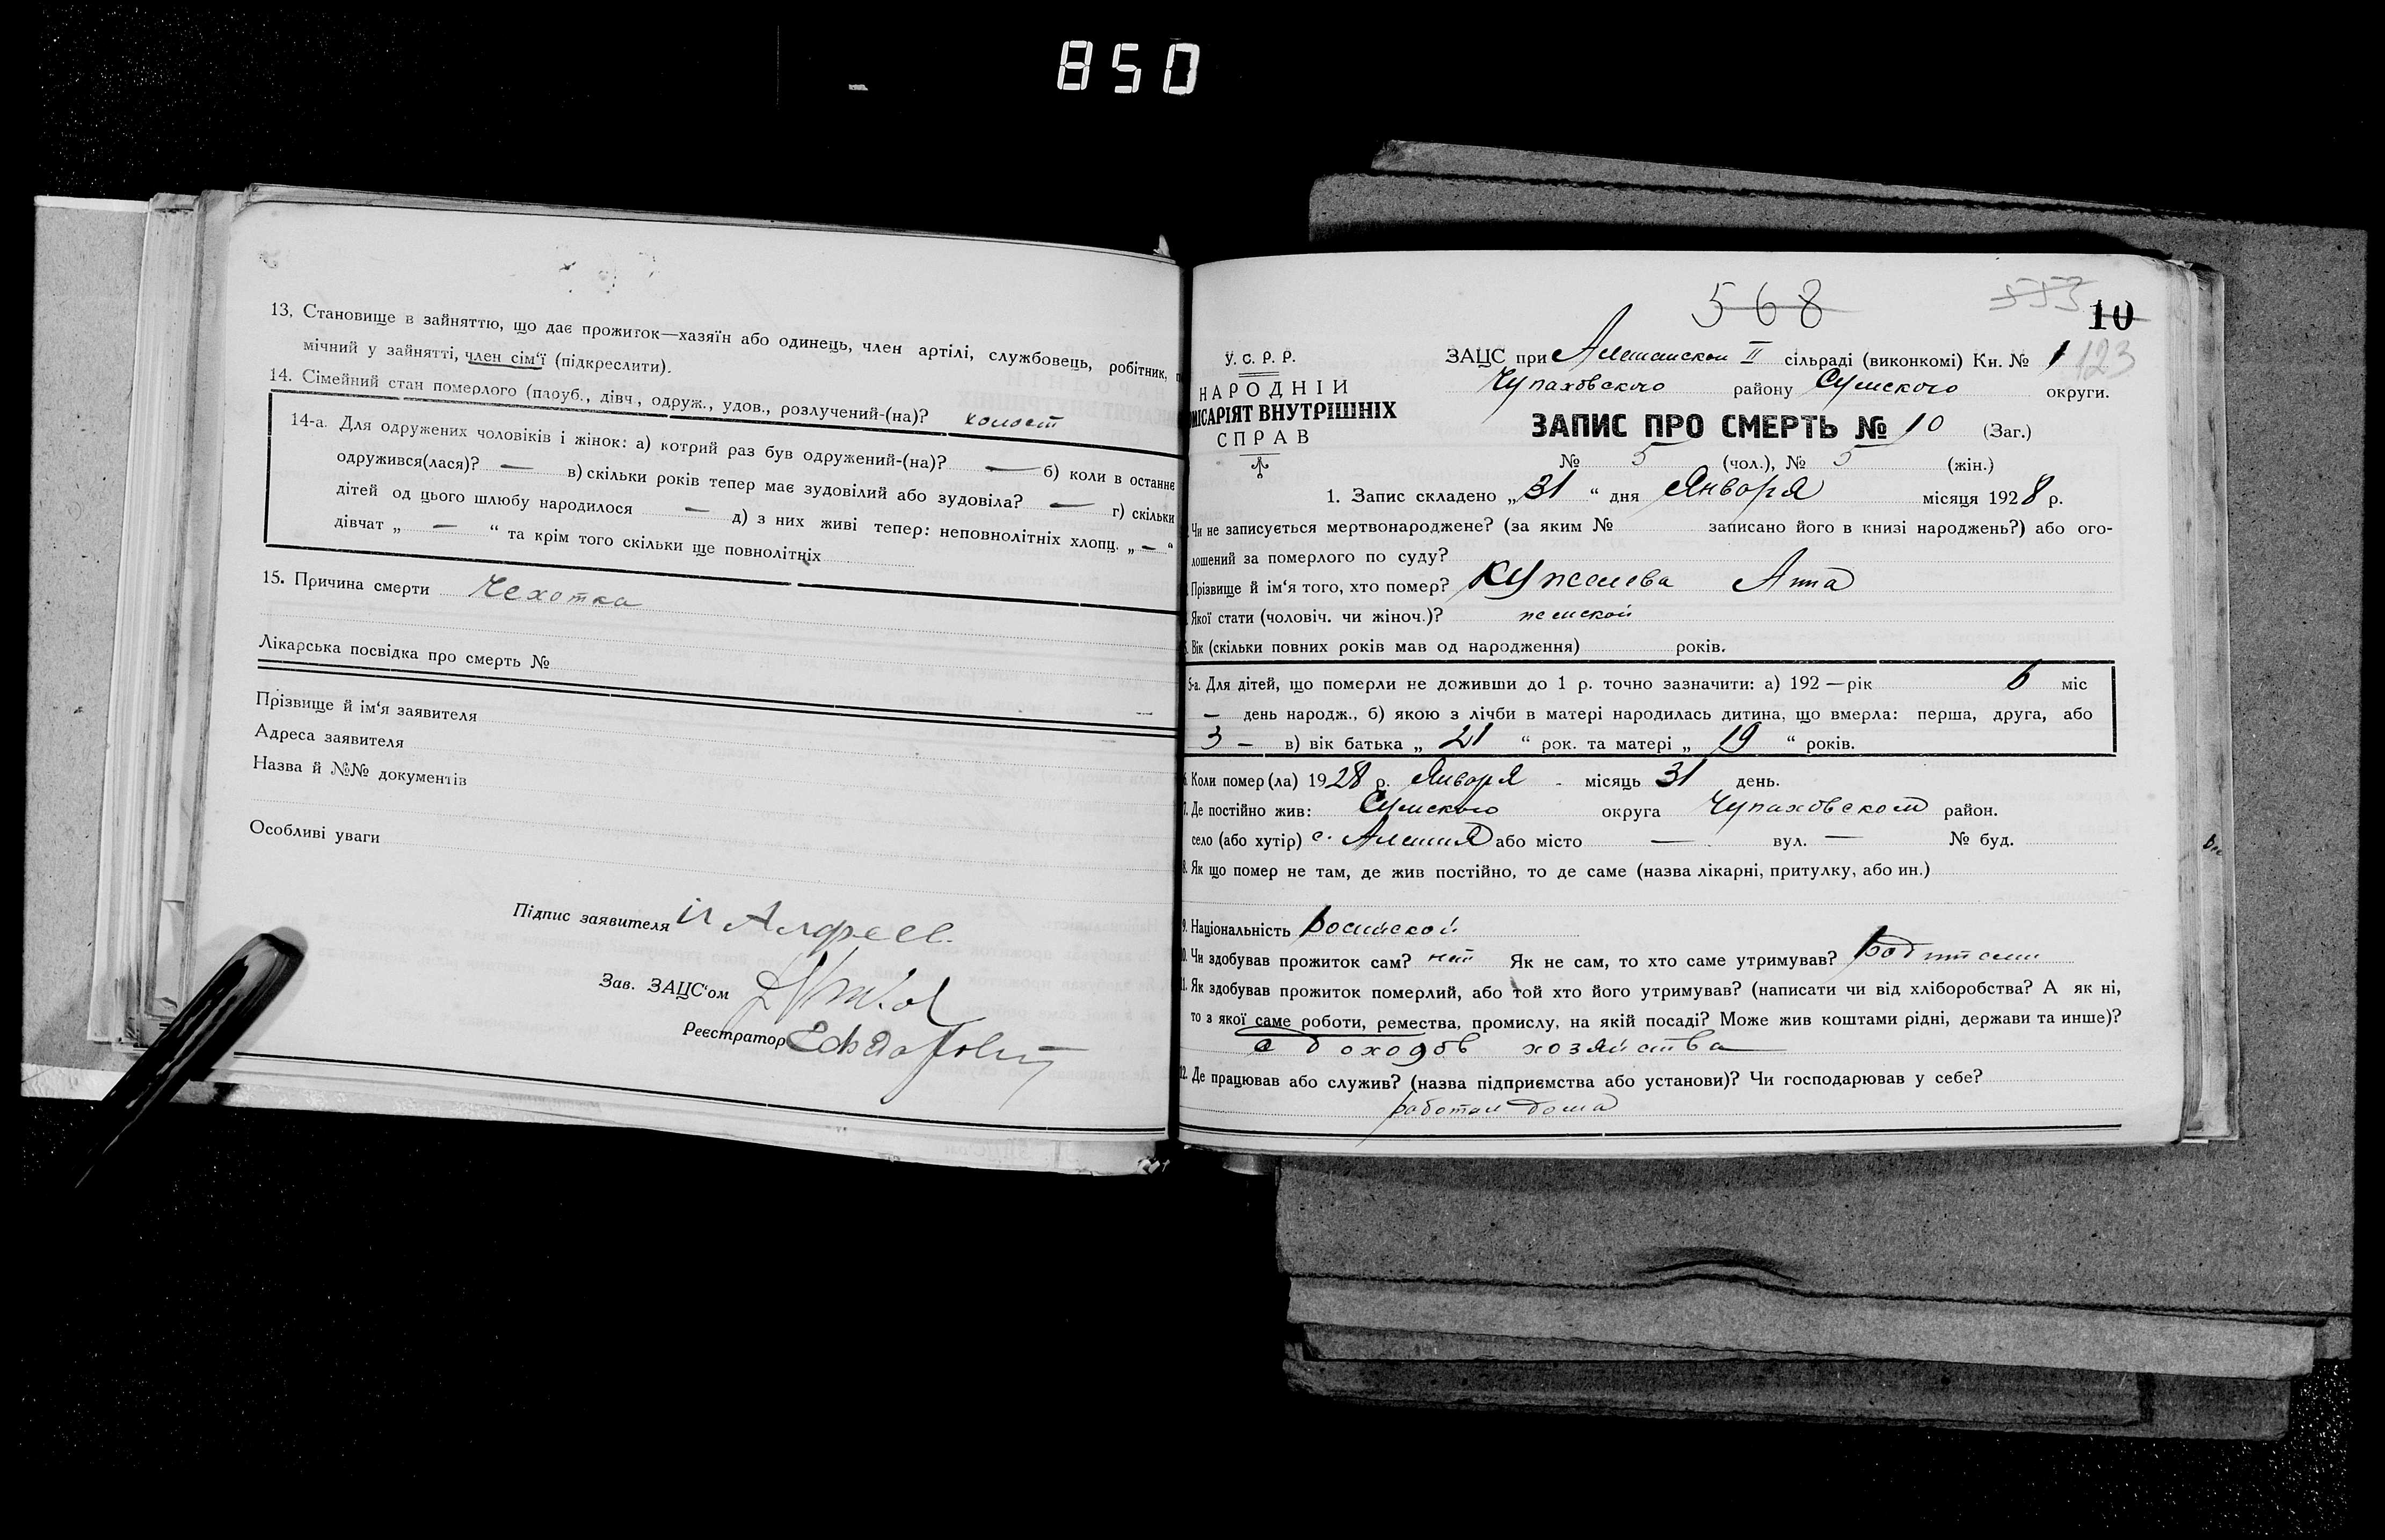 850
13. Становище в зайняттю, що дає прожиток—хазяїн або одинець, член артілі, службовець, робітник,
мічний у зайнятті, член сім'ї (підкреслити).
14. Сімейний стан померлого (пдоуб., дівч, одруж., удов., розлучений-(на)? холост
14-а. Для одружених чоловіків і жінок: а) котрий раз був одружений-(на)? — б) коли в останнє
одружився(лася)? — в) скільки років тепер має зудовілий або зудовіла? — г) скільки
дітей од цього шлюбу народилося — д) з них живі тепер: неповнолітніх хлопц. „ — “
дівчат „ — “ та крім того скільки ще повнолітніх
15. Причина смерти Чехотка
Лікарська посвідка про смерть №
Прізвище й ім'я заявителя
Адреса заявителя
Назва й №№ документів
Особливі уваги
Підпис заявителя
Зав. ЗАЦС'ом
Реєстратор
568
553
10
У. С. Р. Р.
НАРОДНІЙ
МІСАРІЯТ ВНУТРІШНІХ
СПРАВ
ЗАЦС при Алешанской II сільраді (виконкомі) Кн. № 1
123
Чупаховского району Сумского округи.
ЗАПИС ПРО СМЕРТЬ № 10 (Заг.)
№ 5 (чол.), № 5 (жін.)
1. Запис складено „31“ дня Января місяця 1928 р.
Чи не записується мертвонароджене? (за яким № записано його в книзі народжень?) або ого-
лошений за померлого по суду?
Прізвище й ім'я того, хто помер? Анна
Якої стати (чоловіч. чи жіноч.)? женской
Вік (скільки повних років мав од народження) років.
5-а. Для дітей, що померли не доживши до 1 р. точно зазначити: а) 192 — рік 6 міс
— день народж., б) якою з лічби в матері народилась дитина, що вмерла: перша, друга, або
3 — в) вік батька „ 21 “ рок. та матері „ 19 “ років.
Коли помер(ла) 1928 р. Января - місяць 31 день.
7. Де постійно жив: Сумского округа Чупаховском район.
село (або хутір) с. Алешня або місто — вул. — № буд.
8. Як що помер не там, де жив постійно, то де саме (назва лікарні, притулку, або ин.)
9. Національність
10. Чи здобував прожиток сам? нет Як не сам, то хто саме утримував?
11. Як здобував прожиток померлий, або той хто його утримував? (написати чи від хліборобства? А як ні,
то з якої саме роботи, ремества, промислу, на якій посаді? Може жив коштами рідні, держави та инше)?
с доходов хозяйства
12. Де працював або служив? (назва підприємства або установи)? Чи господарював у себе?
работал дома